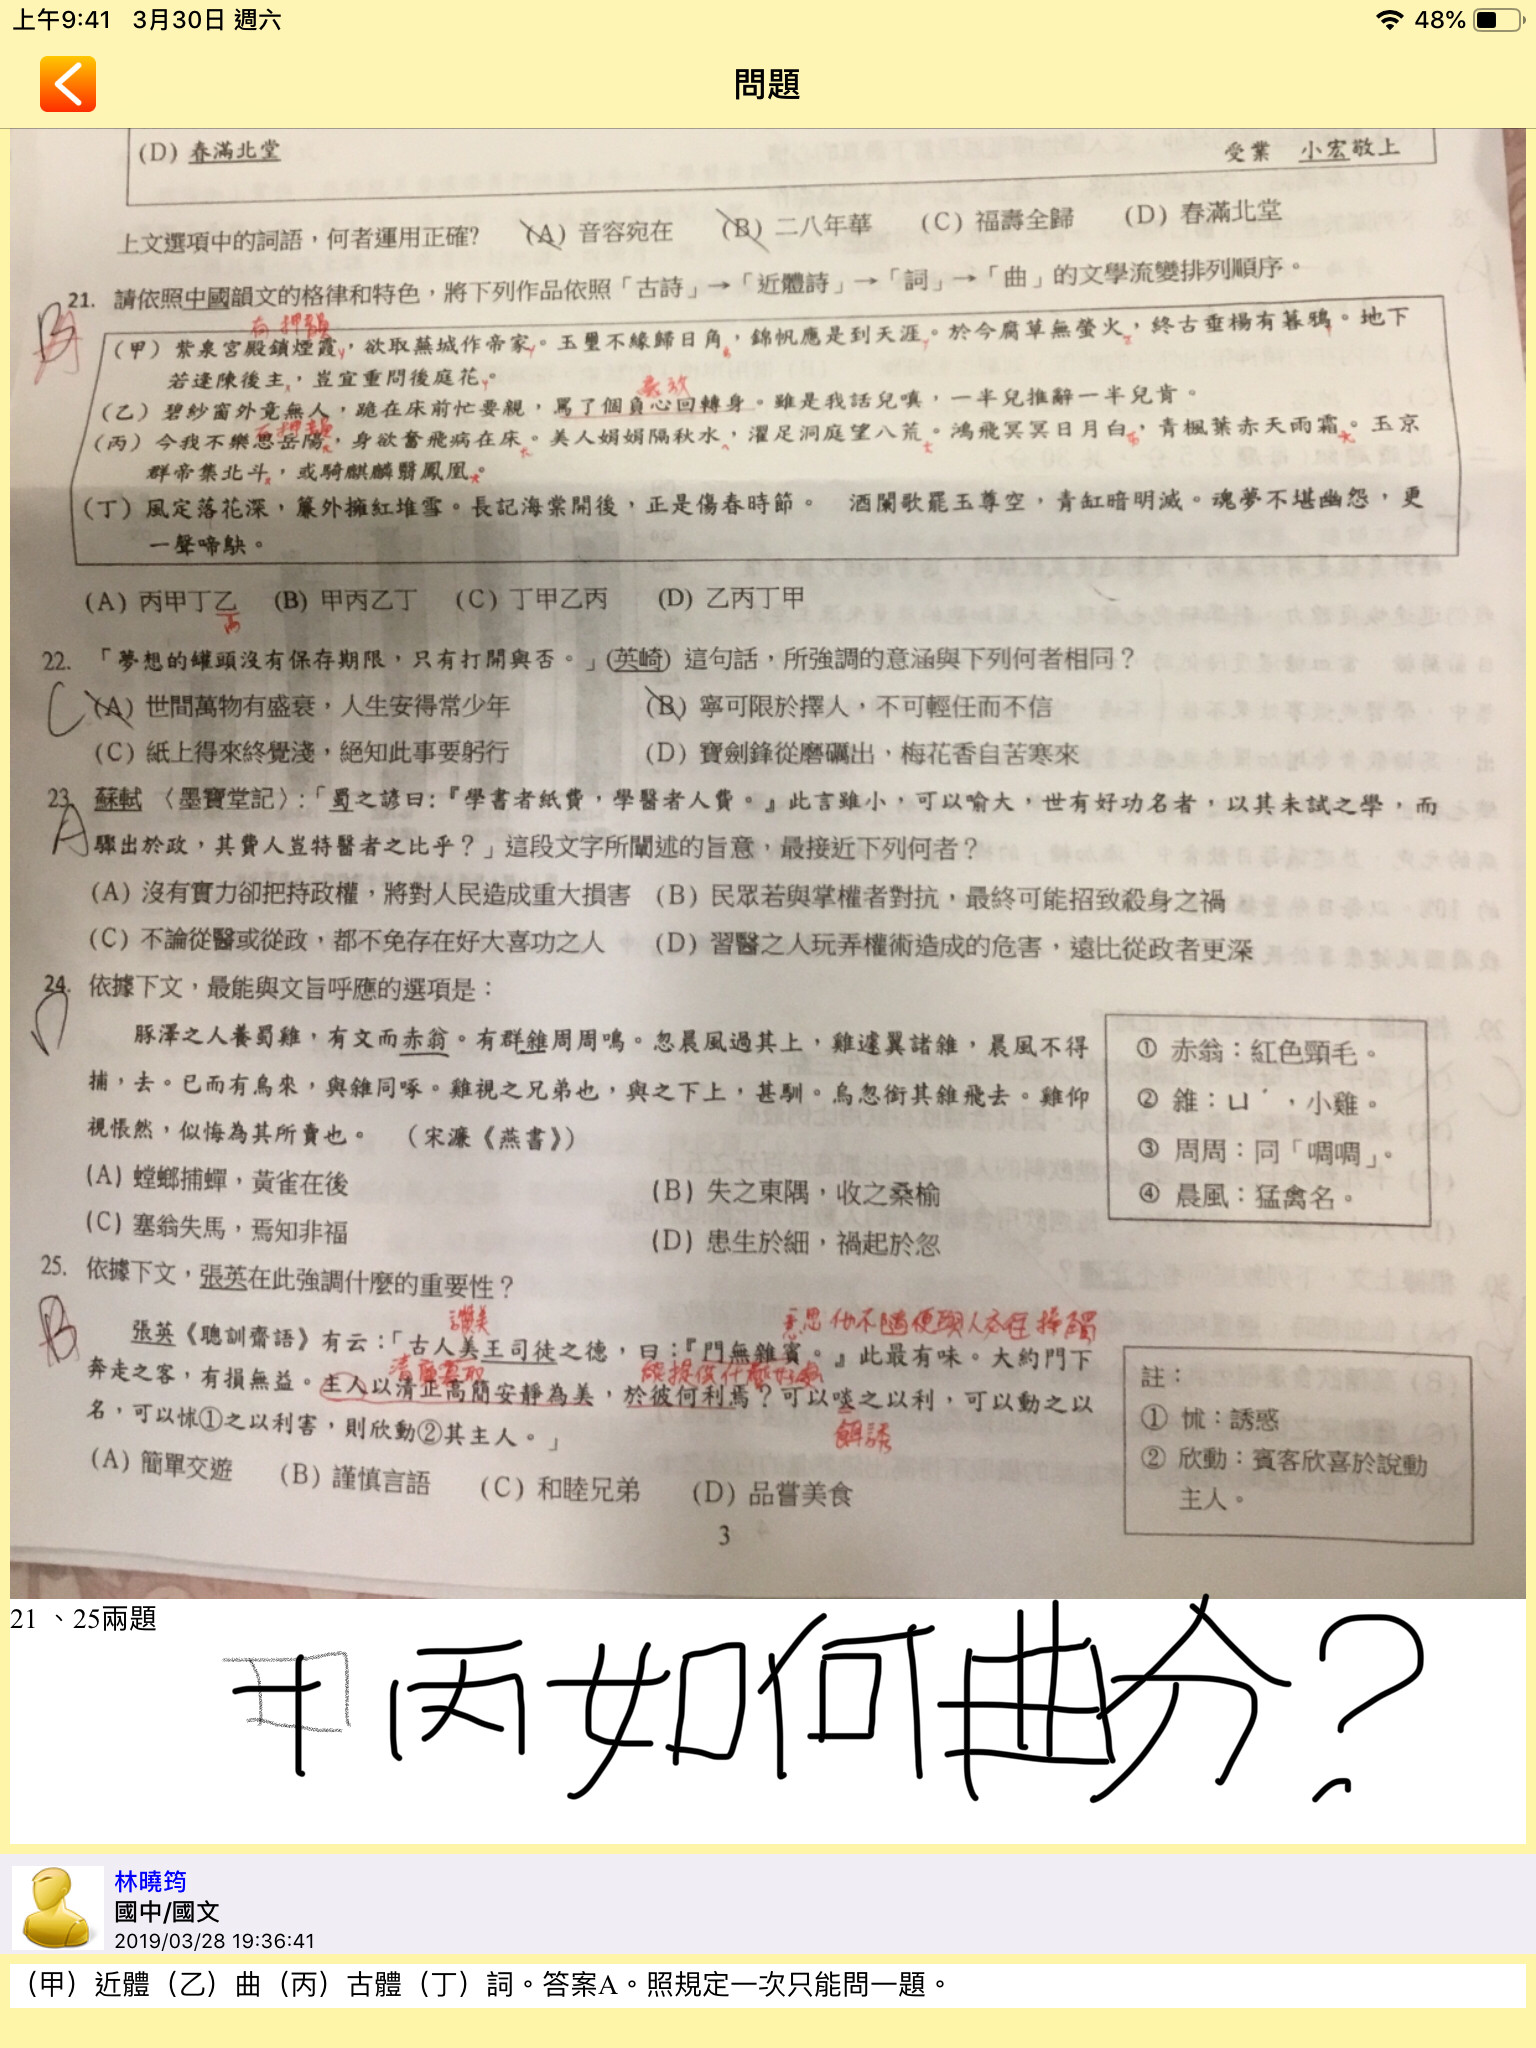 上午9:41 3月30日 週六 48%
問題
(D) 春滿北堂 受業 小宏敬上
上文選項中的詞語，何者運用正確? (A) 音容宛在 (B) 二八年華 (C) 福壽全歸 (D) 春滿北堂
21. 請依照中國韻文的格律和特色，將下列作品依照「古詩」→「近體詩」→「詞」→「曲」的文學流變排列順序。
有押韻
(甲) 紫泉宮殿鎖煙霞，欲取蕪城作帝家。玉璽不緣歸日角，錦帆應是到天涯。於今腐草無螢火，終古垂楊有暮鴉。地下
若逢陳後主，豈宜重問後庭花。
(乙) 碧紗窗外竟無人，跪在床前忙要親，罵了個負心回轉身。雖是我話兒嗔，一半兒推辭一半兒肯。
(丙) 今我不樂思岳陽，身欲奮飛病在床。美人娟娟隔秋水，濯足洞庭望八荒。鴻飛冥冥日月白，青楓葉赤天雨霜。玉京
群帝集北斗，或騎麒麟翳鳳凰。
(丁) 風定落花深，簾外擁紅堆雪。長記海棠開後，正是傷春時節。 酒闌歌罷玉尊空，青缸暗明滅。魂夢不堪幽怨，更
一聲啼鴂。
(A) 丙甲丁乙 (B) 甲丙乙丁 (C) 丁甲乙丙 (D) 乙丙丁甲
22. 「夢想的罐頭沒有保存期限，只有打開與否。」(英崎) 這句話，所強調的意涵與下列何者相同？
C
(A) 世間萬物有盛衰，人生安得常少年 (B) 寧可限於擇人，不可輕任而不信
(C) 紙上得來終覺淺，絕知此事要躬行 (D) 寶劍鋒從磨礪出，梅花香自苦寒來
23. 蘇軾〈墨寶堂記〉:「蜀之諺曰:『學書者紙費，學醫者人費。』此言雖小，可以喻大，世有好功名者，以其未試之學，而
A
驟出於政，其費人豈特醫者之比乎？」這段文字所闡述的旨意，最接近下列何者？
(A) 沒有實力卻把持政權，將對人民造成重大損害 (B) 民眾若與掌權者對抗，最終可能招致殺身之禍
(C) 不論從醫或從政，都不免存在好大喜功之人 (D) 習醫之人玩弄權術造成的危害，遠比從政者更深
24. 依據下文，最能與文旨呼應的選項是：
豚澤之人養蜀雞，有文而赤翁。有群雛周周鳴。忽晨風過其上，雞遽翼諸雛，晨風不得
捕，去。已而有烏來，與雛同啄。雞視之兄弟也，與之下上，甚馴。烏忽銜其雛飛去。雞仰
視悵然，似悔為其所賣也。 (宋濂《燕書》)
① 赤翁：紅色頸毛。
② 雛：ㄩˊ，小雞。
③ 周周：同「啁啁」。
④ 晨風：猛禽名。
(A) 螳螂捕蟬，黃雀在後 (B) 失之東隅，收之桑榆
(C) 塞翁失馬，焉知非福 (D) 患生於細，禍起於忽
25. 依據下文，張英在此強調什麼的重要性？
B
讚美
張英《聰訓齋語》有云：「古人美王司徒之德，曰：『門無雜賓。』此最有味。大約門下
奔走之客，有損無益。主人以清正高簡安靜為美，於彼何利焉？可以啖之以利，可以動之以
名，可以怵①之以利害，則欣動②其主人。」
餌誘
註：
① 怵：誘惑
② 欣動：賓客欣喜於說動
主人。
(A) 簡單交遊 (B) 謹慎言語 (C) 和睦兄弟 (D) 品嘗美食
3
21 、25兩題
甲丙如何曲分？
林曉筠
國中/國文
2019/03/28 19:36:41
（甲）近體（乙）曲（丙）古體（丁）詞。答案A。照規定一次只能問一題。